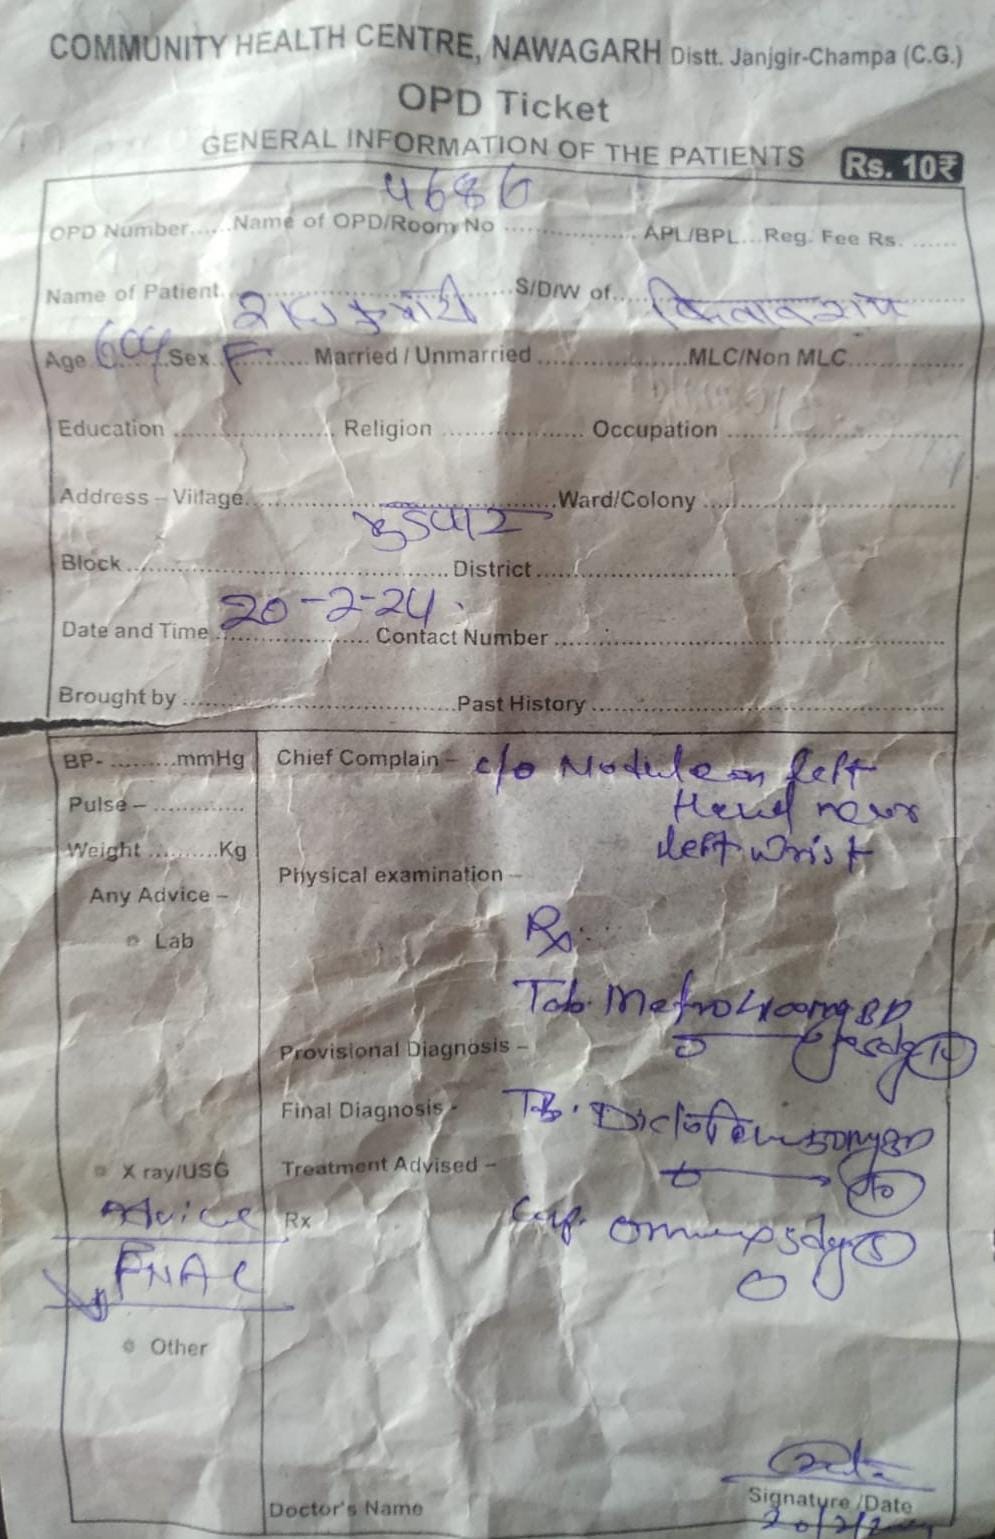 COMMUNITY HEALTH CENTRE, NAWAGARH Distt. Janjgir-Champa (C.G.)
OPD Ticket
GENERAL INFORMATION OF THE PATIENTS Rs. 10₹
4686
OPD Number...... Name of OPD/Room No ................ APL/BPL... Reg. Fee Rs. ......
Name of Patient........................ S/D/W of....
Age 60y Sex F ........ Married / Unmarried .................. MLC/Non MLC..............
Education .................... Religion ................. Occupation ...........................
Address – Village........................................ Ward/Colony ..............................
Block ......................................... District.........................
20-2-24
Date and Time ................... Contact Number ................................................
Brought by .................................. Past History ...........................................
BP- .........mmHg
Pulse – ............
Weight ..........Kg
Any Advice –
Lab
X ray/USG
Advice
FNAC
Other
Chief Complain – c/o Nodule on left
Hand near
left wrist
Physical examination –
Rx
Tab. Metro 400mg BD
Provisional Diagnosis – 5dy 10
Final Diagnosis - Tab. Diclofenac 50mg BD
Treatment Advised – 10
Rx Cap. 5dy 5
Doctor's Name
Signature /Date
20/2/24